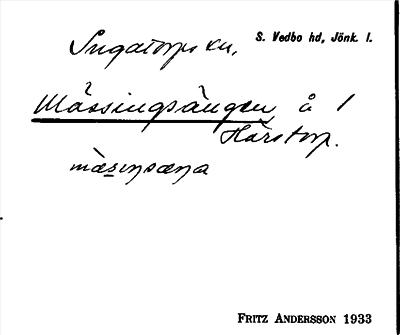 Ingatorps kn. S. Vedbo hd, Jönk. l.
Mässingsängen, å 1
Hårstorp.
mæ̀sɪŋsæŋa
FRITZ ANDERSSON 1933